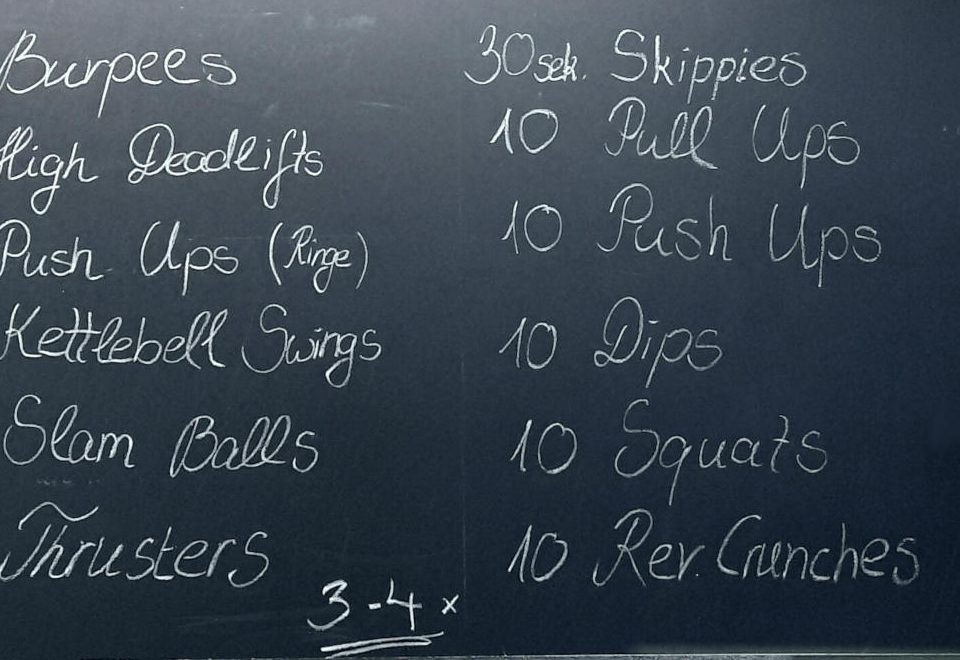 Burpees
High Deadlifts
Push Ups (Ringe)
Kettlebell Swings
Slam Balls
Thrusters
3-4 x
30 sek. Skippies
10 Pull Ups
10 Push Ups
10 Dips
10 Squats
10 Rev. Crunches